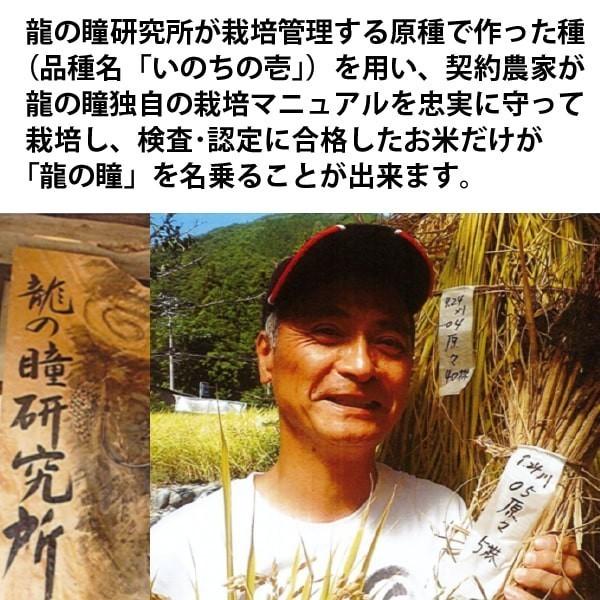 龍の瞳研究所が栽培管理する原種で作った種
（品種名「いのちの壱」）を用い、契約農家が
龍の瞳独自の栽培マニュアルを忠実に守って
栽培し、検査･認定に合格したお米だけが
「龍の瞳」を名乗ることが出来ます。
龍の瞳研究所
9.24
04
原
々
40株
05
原
々
5株